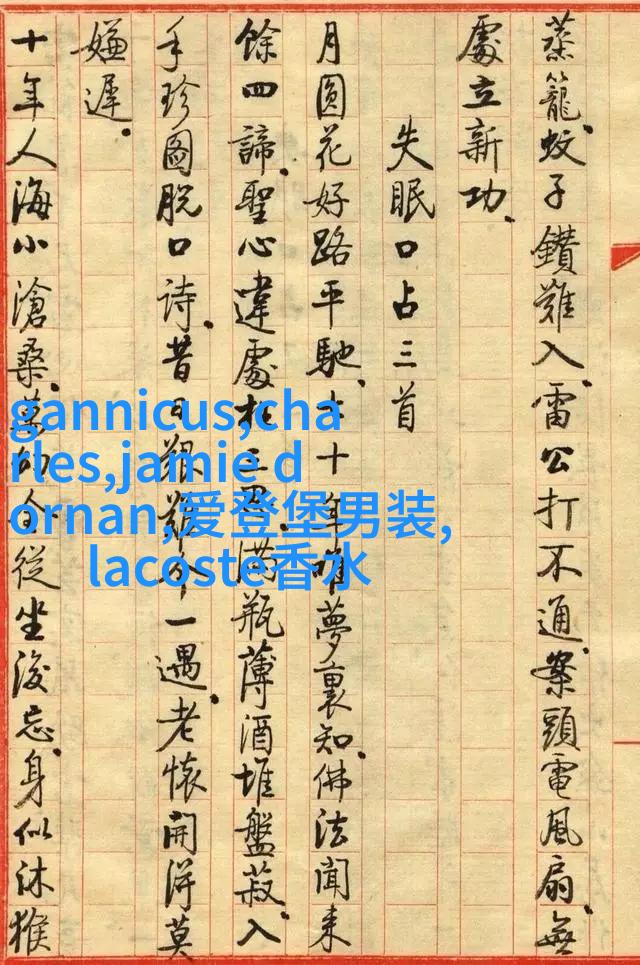 蒸籠、蚊子鑽難入、雷公打不通、案頭電風扇、無
處立新功、
失眠口占三首
月圓花好路平馳、七十年夢裏知、佛法聞来
餘四諦、聖心違處三滿瓶薄酒堆盤菽、入
手珍圖脱口詩、昔日艱難今一遇、老懷開得莫
嫌遲、
十年人海小滄桑、萬幻全從坐後忘、身似沐猴
gannicus,cha
rles,jamie d
ornan,爱登堡男装,
lacoste香水